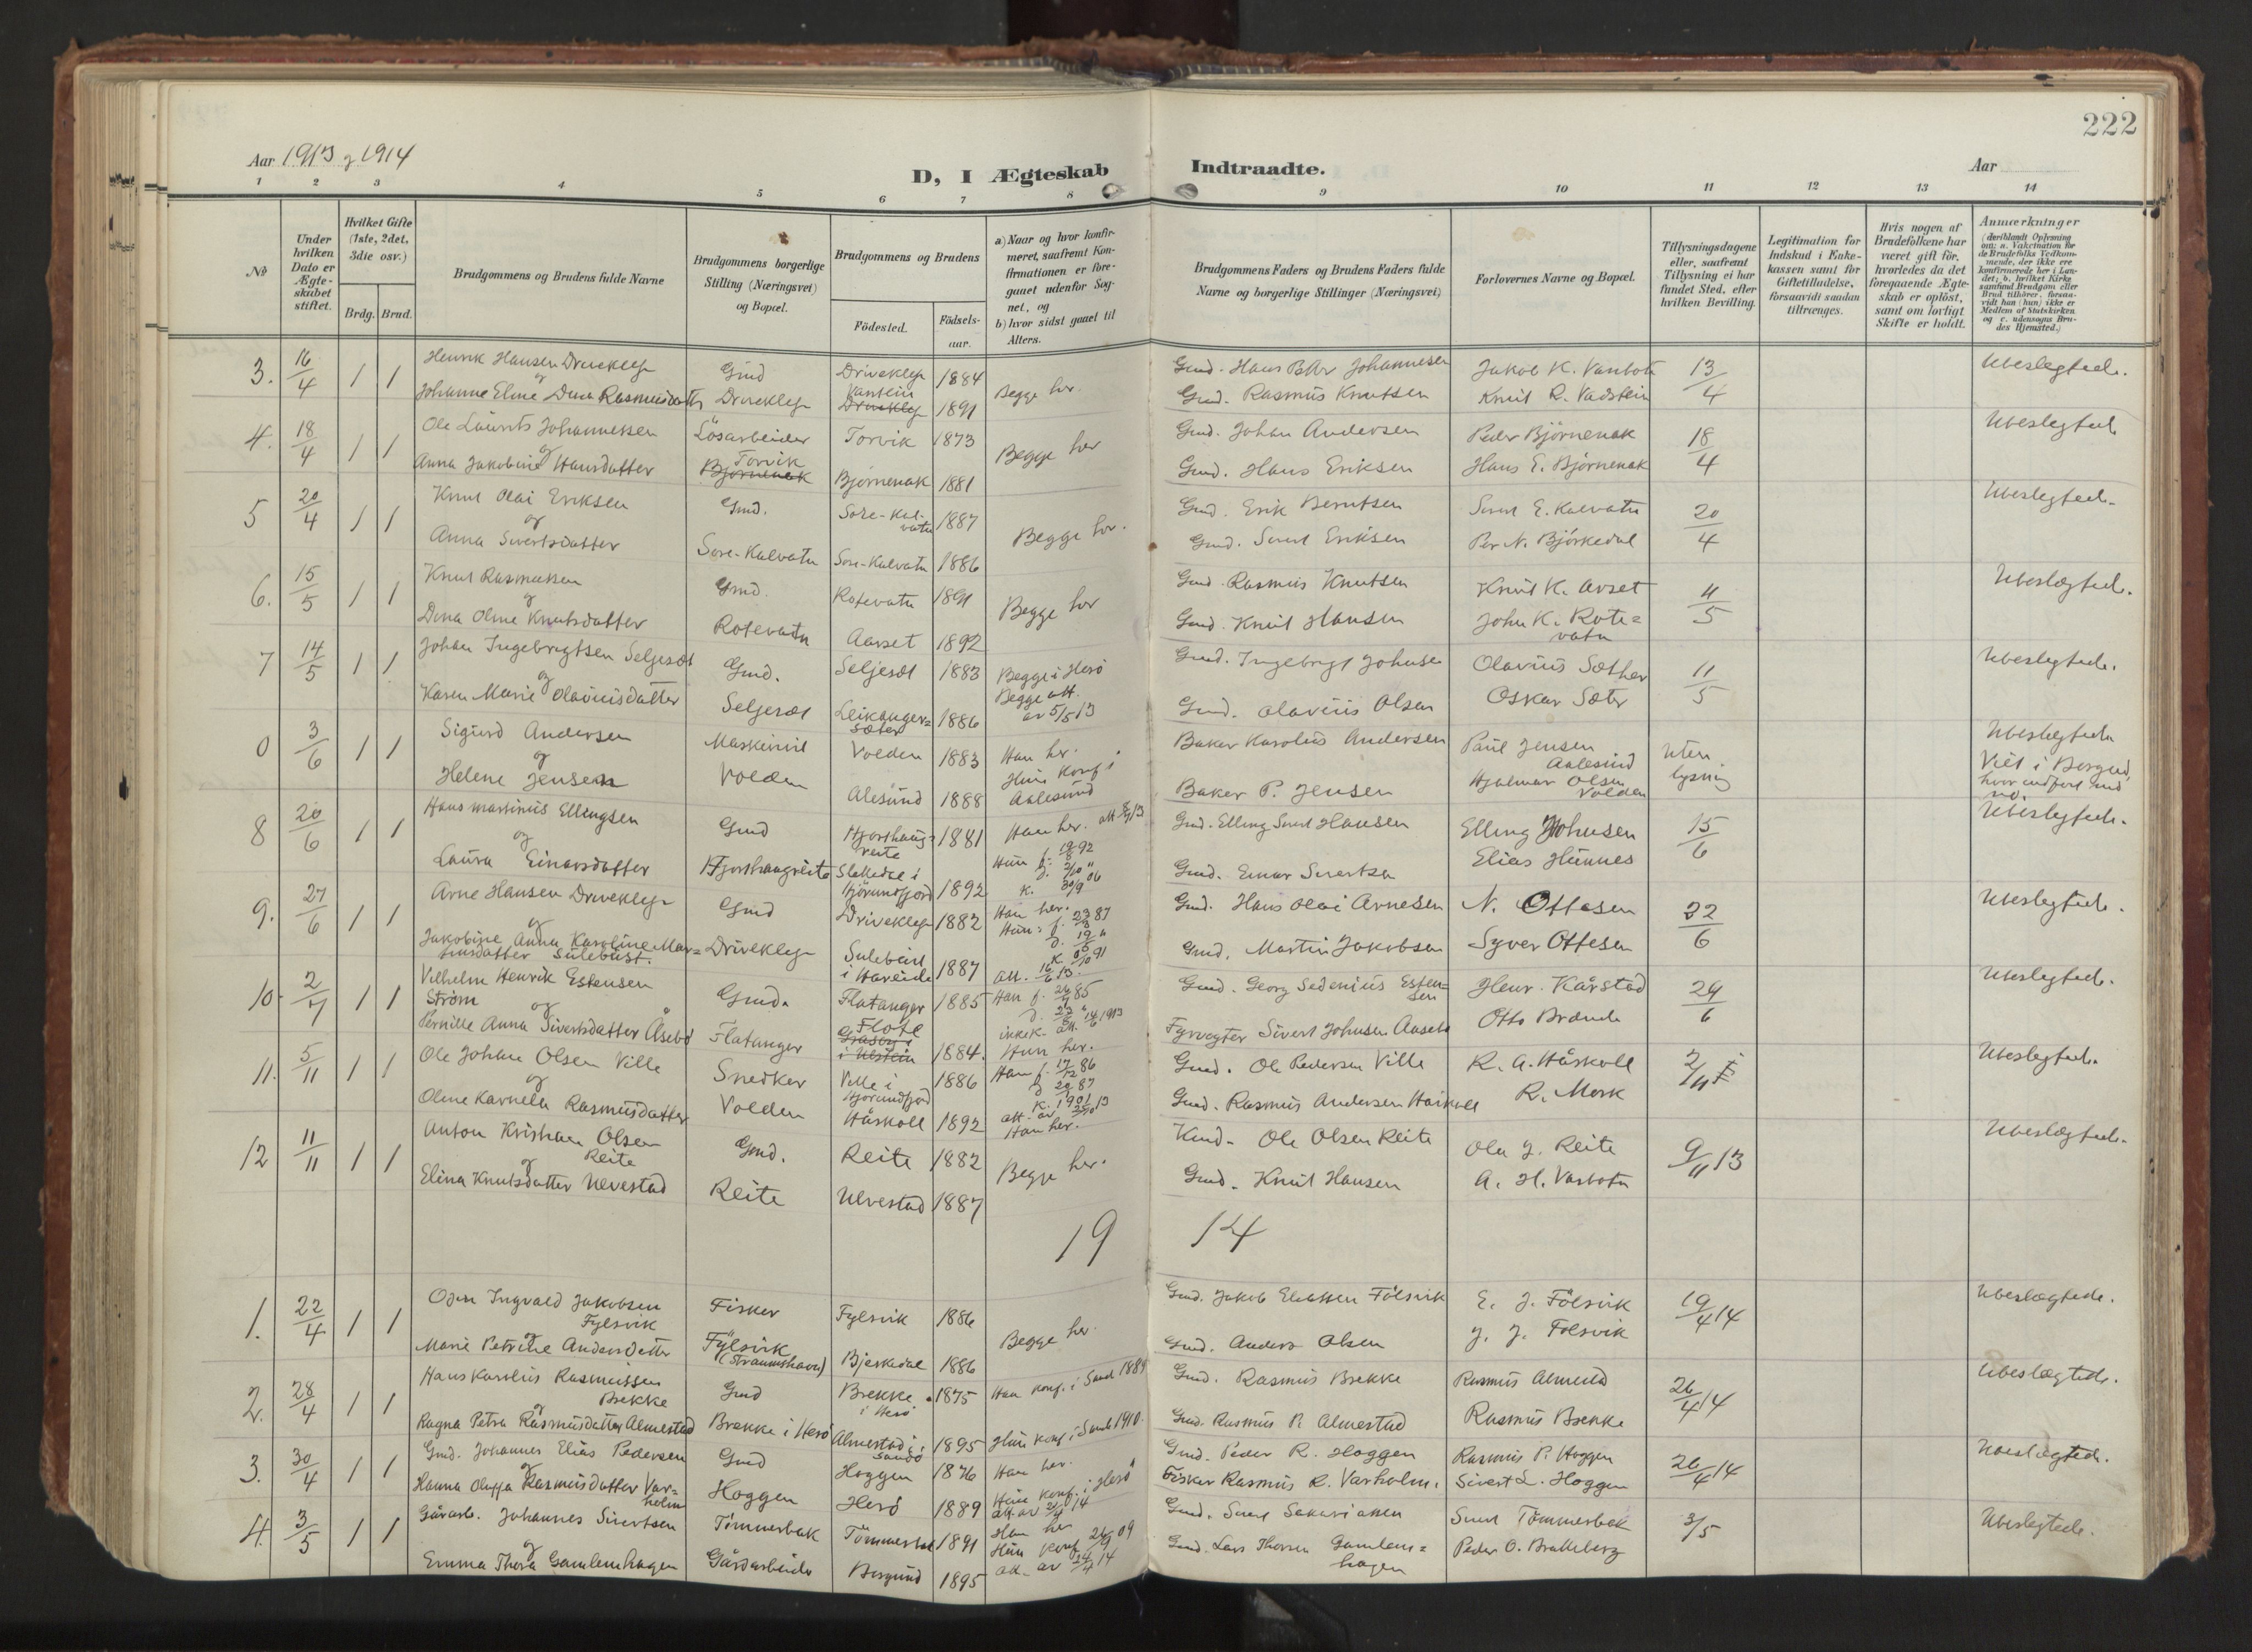 222
Aar 1913 og 1914
D, I Ægteskab Indtraadte.
Aar
1 2 3 4 5 6 7 8 9 10 11 12 13 14
No
Under hvilken Dato er Ægteskabet stiftet.
Hvilket Gifte (1ste, 2det, 3die osv.)
Brdg. Brud.
Brudgommens og Brudens fulde Navne
Brudgommens borgerlige Stilling (Næringsvei) og Bopæl.
Brudgommens og Brudens
Födested.
Födsels-aar.
a) Naar og hvor konfirmeret, saafremt Konfirmationen er foregaaet udenfor Sognet, og
b) hvor sidst gaaet til Alters.
Brudgommens Faders og Brudens Faders fulde Navne og borgerlige Stillinger (Næringsvei)
Forlovernes Navne og Bopæl.
Tillysningsdagene eller, saafremt Tillysning ei har fundet Sted, efter hvilken Bevilling.
Legitimation for Indskud i Enkekassen samt for Giftetilladelse, forsaavidt saadan tiltrænges.
Hvis nogen af Brudefolkene har været gift för, hvorledes da det foregaaende Ægteskab er oplöst, samt om lovligt Skifte er holdt.
Anmærkninger
(deriblandt Oplysning om: a. Vakcination for de Brudefolks Vedkommende, der ikke ere konfirmerede her i Landet; b. hvilket Kirkesamfund Brudgom eller Brud tilhörer, forsaavidt han (hun) ikke er Medlem af Statskirken og c. udensogns Brudes Hjemsted.)
3. 16/4 1 1 Henrik Hansen Driveklep Gmd Driveklep 1884 Begge her. Gmd. Hans Peter Johannesen Jakob K. Vanbotn 13/4 Ubeslegtede.
og
Johanne Eline Dina Rasmusdatter Driveklep 1891 Gmd. Rasmus Knutsen Knut R. Vadstein
4. 18/4 1 1 Ole Laurits Johannessen Lösarbeider Torvik 1873 Begge her Gmd. Johan Andersen Peder Björnenak 18/4 Ubeslegtede
og Torvik
Anna Jakobine Hansdatter Björnenak Björnenak 1881 Gmd. Hans Eriksen Hans E. Björnenak
5 20/4 1 1 Knut Olai Eriksen Gmd. Söre-Kalvatn 1887 Begge her. Gmd. Erik Berntsen Sivert E. Kalvatn 20/4 Ubeslegtede.
og
Anna Sivertsdatter Söre-Kalvatn Söre-Kalvatn 1886 Gmd. Sivert Eriksen Per N. Björkedal
6. 15/5 1 1 Knut Rasmussen Gmd. Rotevatn 1891 Begge her Gmd. Rasmus Knutsen Knut K. Aarset 11/5 Ubeslægtede.
og
Dina Oline Knutsdatter Rotevatn Aarset 1892 Gmd. Knut Hansen John K. Rotevatn
7 14/5 1 1 Johan Ingebrigtsen Seljeset Gmd. Seljeset 1883 Begge i Herö Gmd. Ingebrigt Johnsen Olavius Sæther 11/5 Ubeslegtede.
og Begge att.
Karen Marie Olaviusdatter Seljeset Leikanger-sæter 1886 av 5/5 13 Gmd. Olavius Olsen Oskar Sæter
0 3/6 1 1 Sigurd Andersen Maskinist Volden 1883 Han her. Baker Karolius Andersen Paul Jensen Aalesund Uten lysning Ubeslegtede
og Hun konf. i
Helene Jensen Volden Alesund 1888 Aalesund Baker P. Jensen Hjalmar Olsen Volden Viet i Borgund, hvor indfört under no.
8 20/6 1 1 Hans Martinus Ellingsen Gmd Hjorthaugreite 1881 Han her. Gmd. Elling Sivert Hansen Elling Johnsen 15/6 Ubeslegtede.
og
Laura Einarsdatter Hjorthaugreite Slettedal i Hjörundfjord 1892 k. 30/9 06 Gmd. Einar Sivertsen Elias Hunnes
9. 27/6 1 1 Arne Hansen Driveklep Gmd Driveklep 1882 Han her. Gmd. Hans Olai Arnesen N. Ottesen 22/6 Ubeslegtede.
og
Jakobine Anna Karoline Martinsdatter Sulebust. Driveklep Sulebust i Hareide 1887 att. 16/6 13. Gmd. Martin Jakobsen Syver Ottesen
10. 2/7 1 1 Vilhelm Henrik Estensen Ström Gmd. Flatanger 1885 Gmd. Georg Sedenius Estensen Henr. Kårstad 29/6 Ubeslegtede.
og
Pernille Anna Sivertsdatter Åsebö Flatanger Flote i Ulstein 1884. Hun her. Fyrvogter Sivert Johnsen Aasebö Otto Brænde
11. 5/11 1 1 Ole Johan Olsen Ville Snedker Ville i Hjörundfjord 1886 Han f. 17/12 86 Gmd. Ole Pedersen Ville R. A. Håskoll 2/11 Ubeslegtede.
og
Oline Karnela Rasmusdatter Volden Håskoll 1892 Gmd. Rasmus Andersen Haskoll R. Mork
12 11/11 1 1 Anton Kristian Olsen Reite Gmd. Reite 1882 Begge her. Ole Olsen Reite Ole J. Reite 9/11 13 Ubeslægtede.
og
Elina Knutsdatter Ulvestad Reite Ulvestad 1887 Gmd. Knut Hansen A. H. Varbotn
19 14
1. 22/4 1 1 Odin Ingvald Jakobsen Fylsvik Fisker Fylsvik 1886 Begge her. Gmd. Jakob Eliassen Fölsvik E. J. Fölsvik 19/4 14 Ubeslægtede.
og
Marie Petrine Andersdatter Fylsvik (Straumshavn) Bjerkedal 1886 Gmd. Anders Olsen J. J. Folsvik
2. 28/4 1 1 Hans Karolius Rasmussen Brekke Gmd Brekke i Herö 1875 Han konf. i Sande 1889 Gmd. Rasmus Brekke Rasmus Almestad 26/4 14 Ubeslægtede.
og
Ragna Petra Rasmusdatter Almestad Brekke i Herö Almestad i Sande 1895 Hun konf. i Sande 1910. Gmd. Rasmus P. Almestad Rasmus Brekke
3. 30/4 1 1 Gmd. Johannes Elias Pedersen Gmd Hoggen 1876 Han her. Gmd. Peder R. Hoggen Rasmus P. Hoggen 26/4 14 Ubeslægtede.
og
Hanna Oluffa Rasmusdatter Varholm Hoggen Herö 1889 Hun konf. i Herö Fisker Rasmus R. Varholm. Sivert L. Hoggen
4. 3/5 1 1 Gårarb. Johannes Sivertsen Tömmerbak Tömmerbak 1891 Han her Gmd. Sivert Sakariassen Sivert Tömmerbak 3/5 Ubeslegtede.
og Hun konf. 26/9 09
Emma Thora Gamlemshagen Gårdarbeider Borgund 1895 att. av 24/4 14 Gmd. Lars Thorsen Gamlemshagen Peder O. Bratteberg